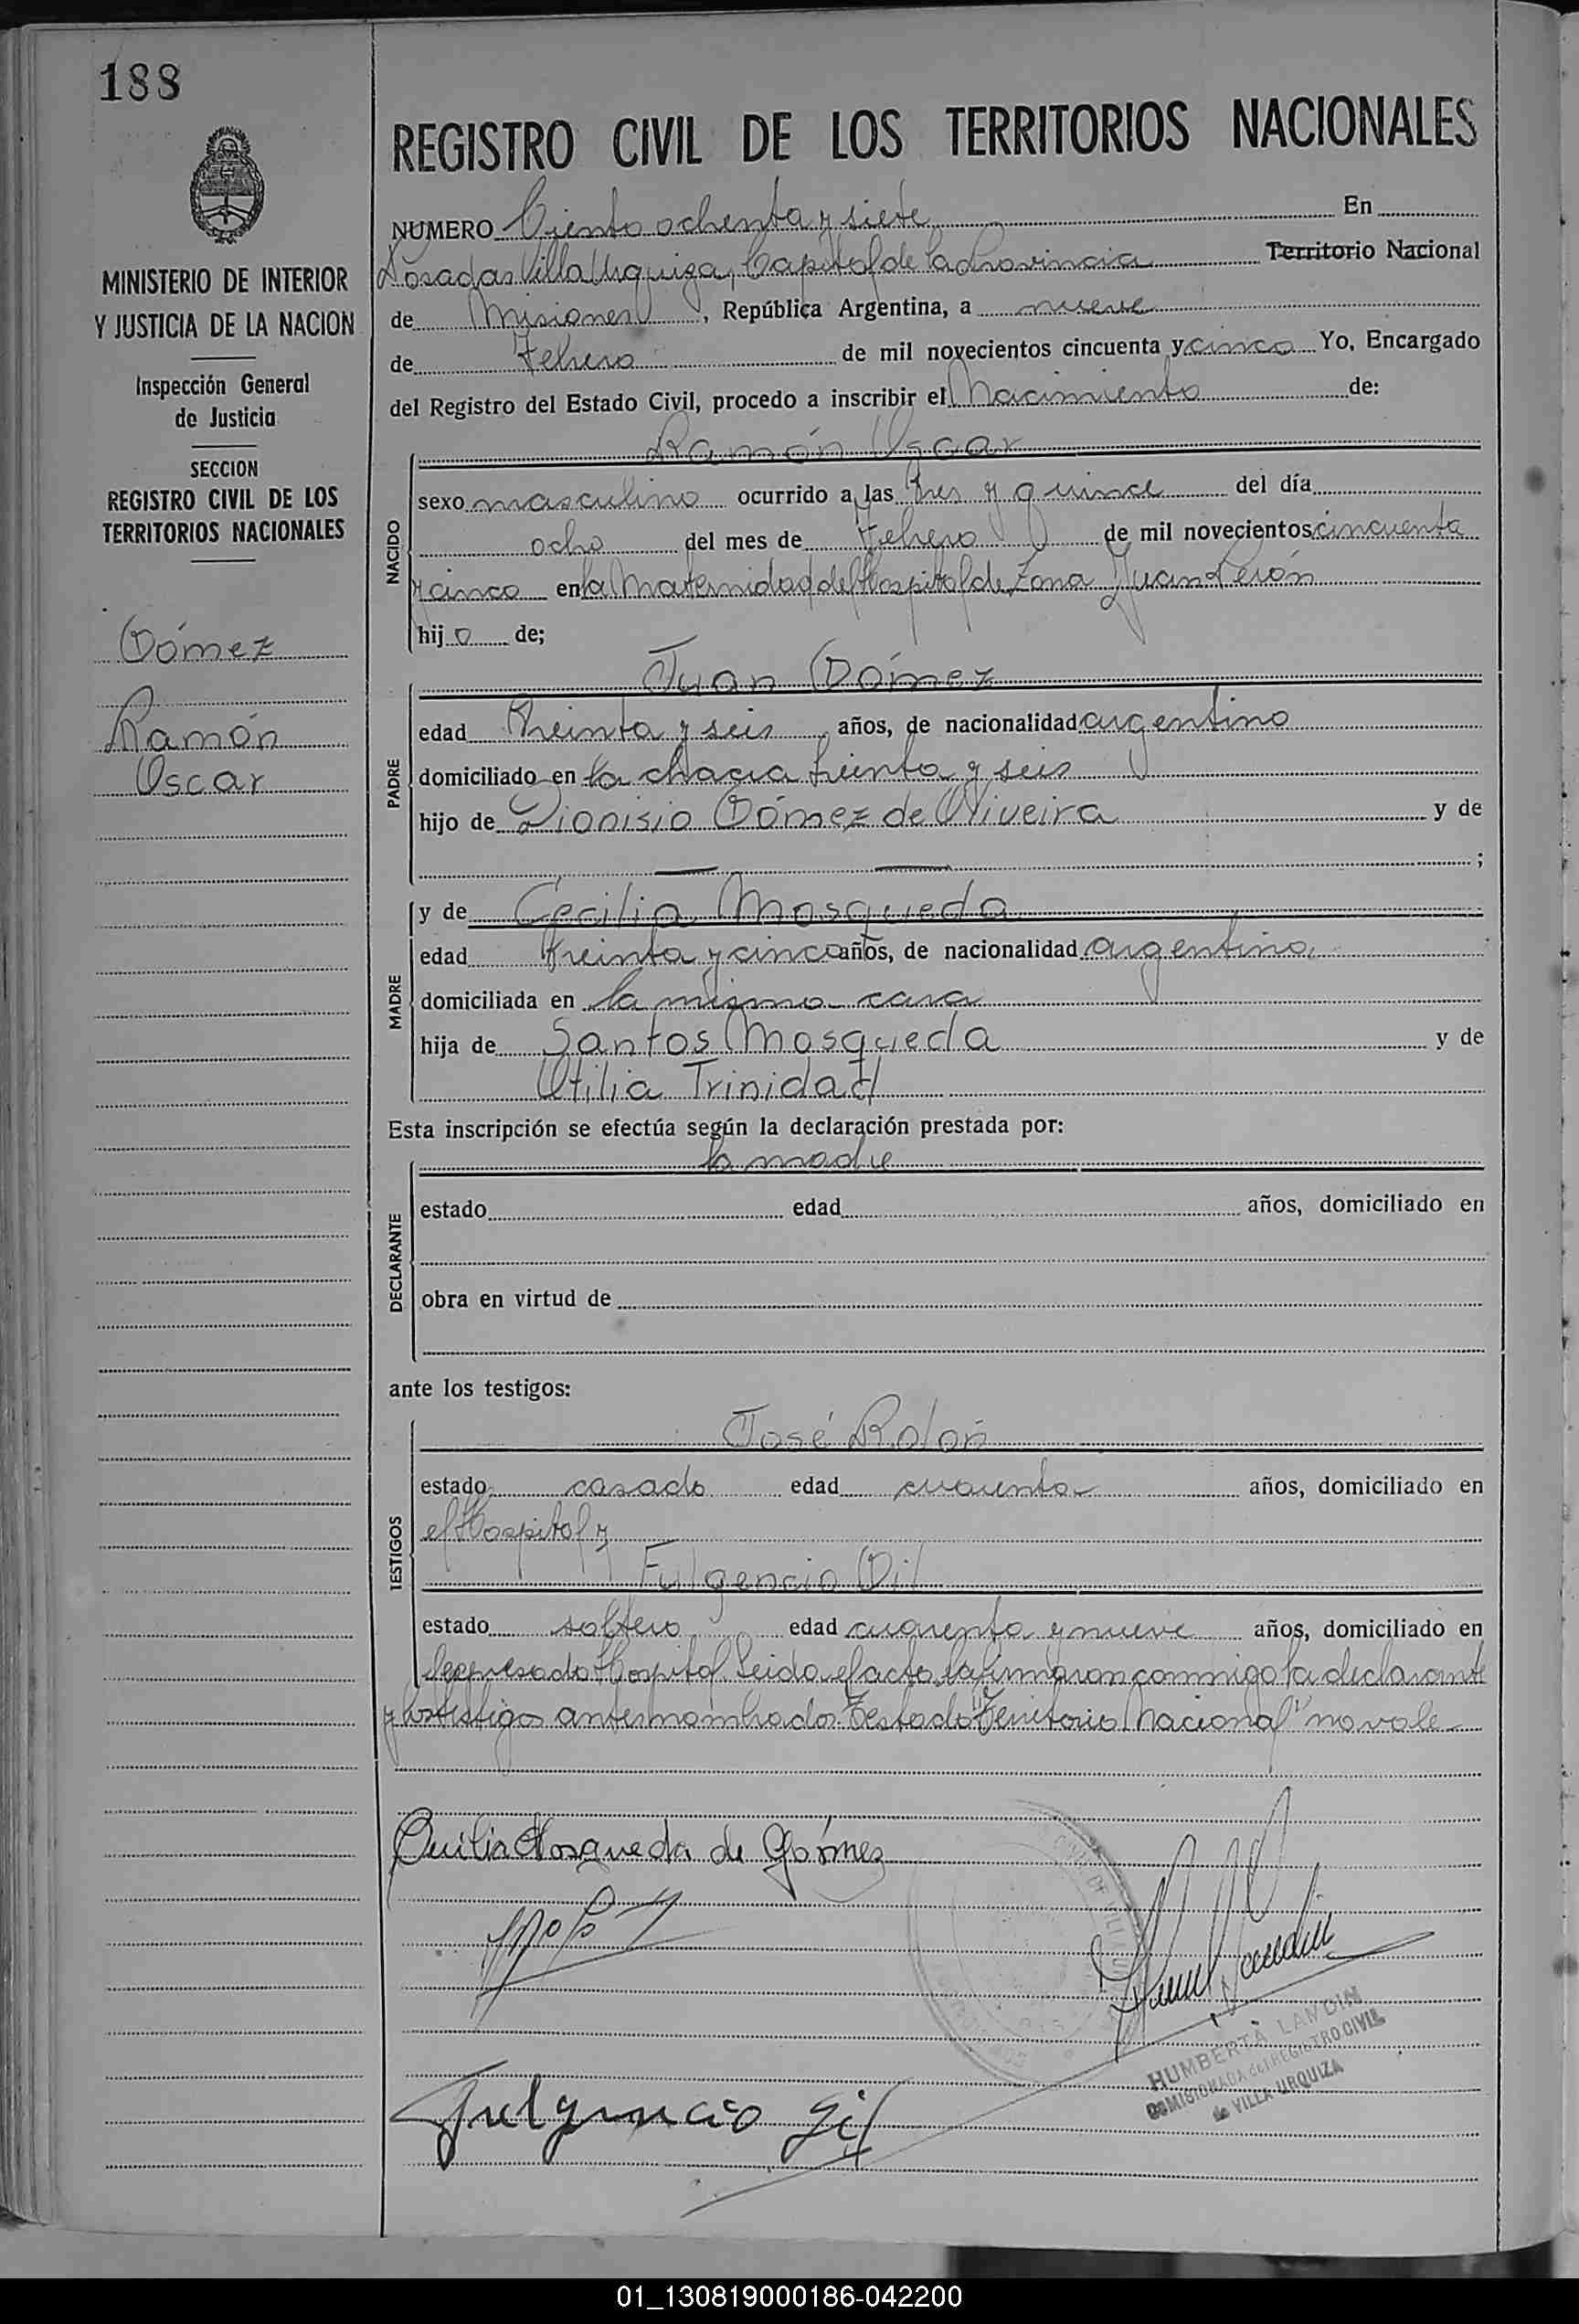 188
REGISTRO CIVIL DE LOS TERRITORIOS NACIONALES
MINISTERIO DE INTERIOR
Y JUSTICIA DE LA NACION
Inspección General
de Justicia
SECCION
REGISTRO CIVIL DE LOS
TERRITORIOS NACIONALES
Gómez
Ramón
Oscar
NUMERO Ciento ochenta y siete En
Posadas Villa Urquiza, Capital de la Provincia Territorio Nacional
de Misiones, República Argentina, a nueve
de Febrero de mil novecientos cincuenta y cinco Yo, Encargado
del Registro del Estado Civil, procedo a inscribir el Nacimiento de:
NACIDO
Ramón Oscar
sexo masculino ocurrido a las tres y quince del día
ocho del mes de Febrero de mil novecientos cincuenta
y cinco en la Maternidad del Hospital de Zona Juan Perón
hijo de;
PADRE
Juan Gómez
edad treinta y seis años, de nacionalidad argentino
domiciliado en la chacra treinta y seis
hijo de Dionisio Gómez de Oliveira y de
;
MADRE
y de Cecilia Mosqueda
edad treinta y cinco años, de nacionalidad argentina,
domiciliada en la misma casa
hija de Santos Mosqueda y de
Otilia Trinidad
Esta inscripción se efectúa según la declaración prestada por:
DECLARANTE
la madre
estado edad años, domiciliado en
obra en virtud de
ante los testigos:
TESTIGOS
José Rolón
estado casado edad cuarenta años, domiciliado en
el Hospital y
Fulgencio Gil
estado soltero edad cuarenta y nueve años, domiciliado en
el expresado Hospital. Leida el acta, la firmaron conmigo la declarante
y los testigos antes nombrados. Testado "Territorio Nacional" no vale
Cecilia Mosqueda de Gómez
Fulgencio Gil
HUMBERTA LANDIN
COMISIONADA del REGISTRO CIVIL
de VILLA URQUIZA
01_130819000186-042200